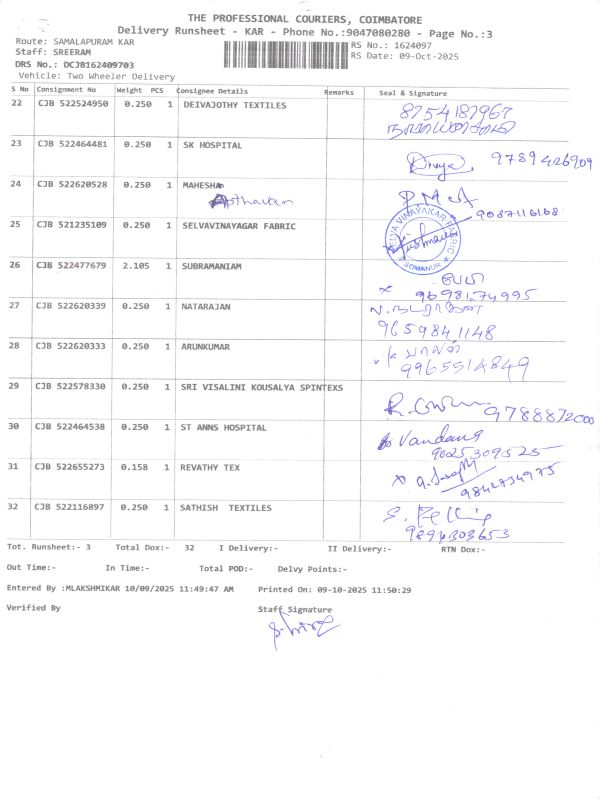 THE PROFESSIONAL COURIERS, COIMBATORE
Delivery Runsheet - KAR - Phone No.:9047080280 - Page No.:3
Route: SAMALAPURAM KAR
RS No.: 1624097
Staff: SREERAM
RS Date: 09-Oct-2025
DRS No.: DCJB162409703
Vehicle: Two Wheeler Delivery
S No Consignment No Weight PCS Consignee Details Remarks Seal & Signature
22 CJB 522524950 0.250 1 DEIVAJOTHY TEXTILES 8754187967
23 CJB 522464481 0.250 1 SK HOSPITAL Divya, 9789426909
24 CJB 522620528 0.250 1 MAHESHA
9087116168
25 CJB 521235109 0.250 1 SELVAVINAYAGAR FABRIC SELVA VINAYAKAR FABRIC SOMANUR
26 CJB 522477679 2.105 1 SUBRAMANIAM
9698174995
27 CJB 522620339 0.250 1 NATARAJAN
9659841148
28 CJB 522620333 0.250 1 ARUNKUMAR
9965514849
29 CJB 522578330 0.250 1 SRI VISALINI KOUSALYA SPINTEXS 9788872000
30 CJB 522464538 0.250 1 ST ANNS HOSPITAL Vandana
9025309525
31 CJB 522655273 0.158 1 REVATHY TEX
9842734975
32 CJB 522116897 0.250 1 SATHISH TEXTILES
9894303653
Tot. Runsheet:- 3 Total Dox:- 32 I Delivery:- II Delivery:- RTN Dox:-
Out Time:- In Time:- Total POD:- Delvy Points:-
Entered By :MLAKSHMIKAR 10/09/2025 11:49:47 AM Printed On: 09-10-2025 11:50:29
Verified By Staff Signature